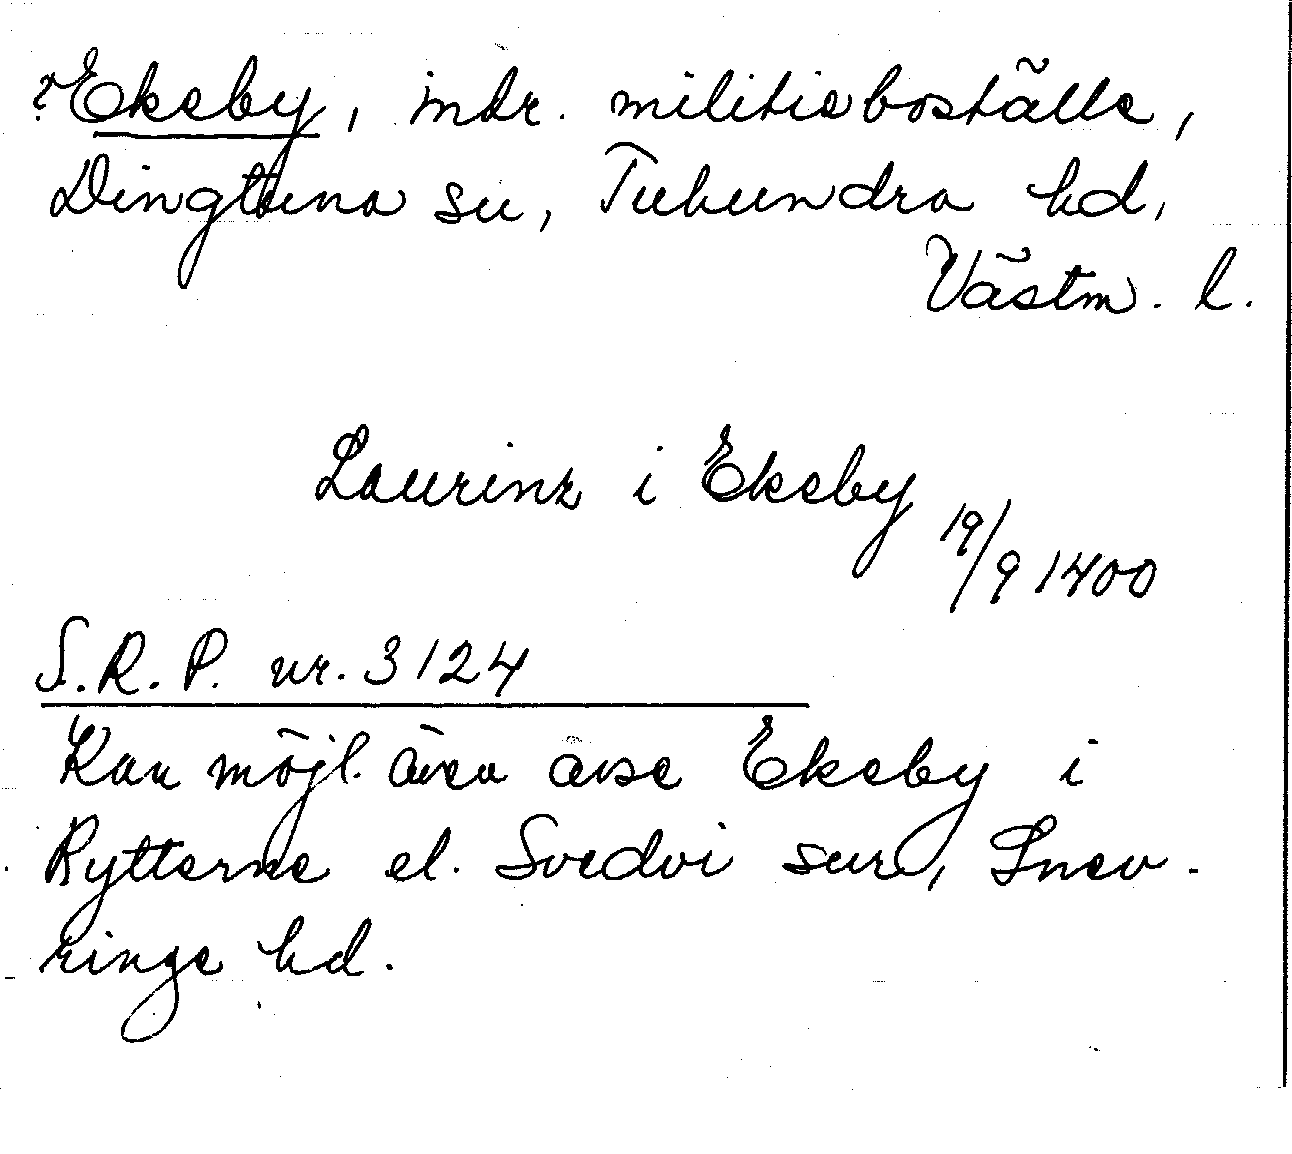 ? Ekeby, mtr. militieboställe,
Dingtuna sn, Tuhundra hd,
Västm. l.
Laurinz i Ekeby 19/9 1400
S.R.P. nr. 3124
Kan möjl. även avse Ekeby i
Rytterne el. Svedvi snr, Snev-
ringe hd.